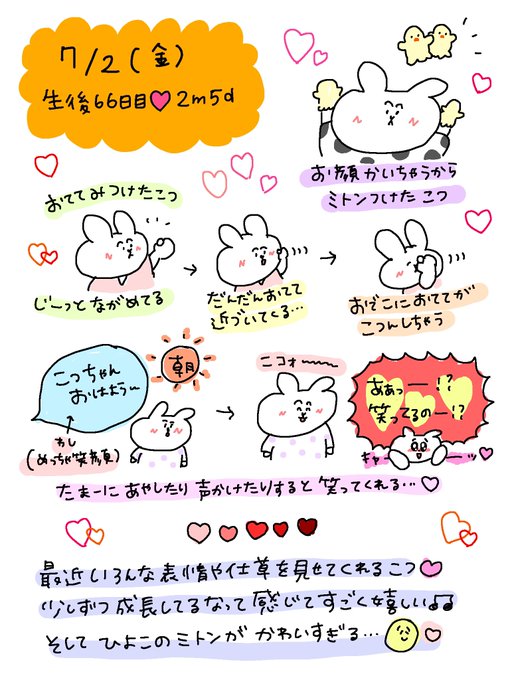 7/2(金)
生後66日目♥2m5d
お顔かいちゃうから
ミトンつけた こつ
おててみつけたこつ
じーっと ながめてる
だんだんおてて
近づいてくる…
おでこにおててが
こつんしちゃう
朝
こっちゃん
おはよう〜
わし
(めっちゃ笑顔)
ニコォ〜〜
ああっー!?
笑ってるのー!?
キャーーーッ♥
たまーに あやしたり 声かけたりすると 笑ってくれる…♡
最近 いろんな表情や仕草を見せてくれるこつ♥
少しずつ成長してるなって感じてすごく嬉しい♫
そして ひよこのミトンが かわいすぎる…